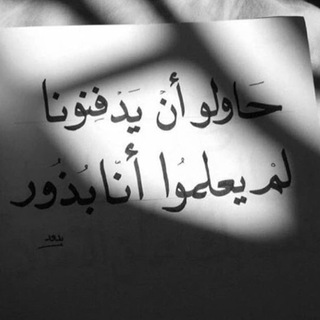 حَاولو أنْ يَدْفِنونا
لمْ يعلمُوا أنّا بُذُور